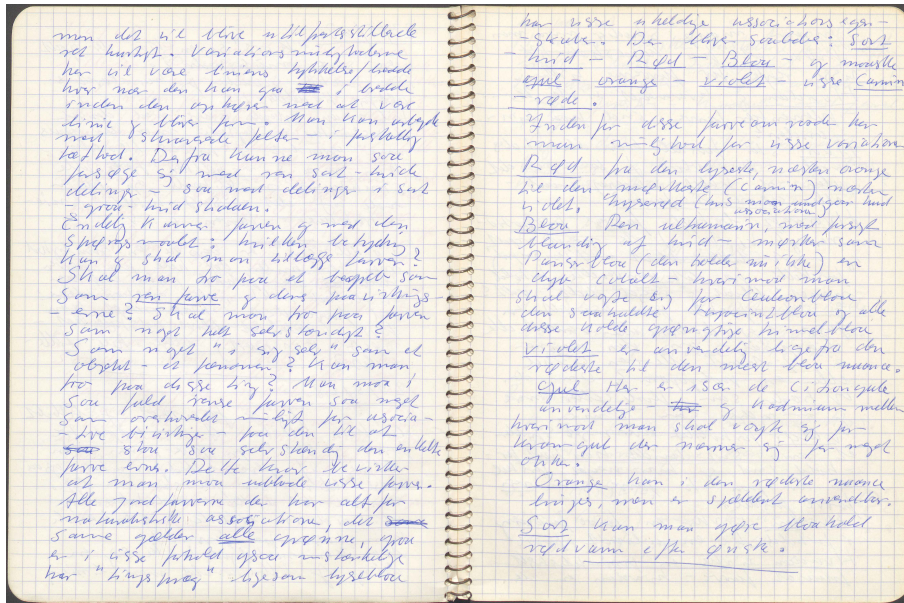 man det vil blive utilfredsstillende
ret hurtigt. Variationsmulighederne
her vil være liniens tykkelse/bredde
hvor nær den kan gaa i bredde
inden den ophører med at være
linie og bliver form. Man kan arbejde
med skraverede felter - i forskellig
tæthed. Derfra kunne man saa
forsøge sig med ren sort-hvide
delinger - saa med delinger i sort
- graa - hvid skalaen.
Endelig kommer farven og med den
spørgsmaalet: hvilken betydning
kan og skal man tillægge farven?
Skal man tro paa et begreb som
som ren farve og dens paavirknings
- evne? Skal man tro paa farven
som noget helt selvstændigt?
Som noget "i sig selv" som et
objekt - et fænomen? Kan man
tro paa disse ting? Man maa i
saa fald rense farven saa meget
som overhovedet muligt for associa-
- tive bivirkninger - faa den til at
staa saa selvstændig den enkelte
farve evner. Dette krav bevirker
at man maa udelade visse farver.
Alle jordfarverne der har alt for
naturalistiske associationer, det
samme gælder alle grønne, graa
er i visse forhold ogsaa
har "tingspræg" ligesom lyseblaa
har visse uheldige associationsegen-
- skaber. Der bliver saaledes: Sort
- hvid - Rød - Blaa - og maaske
gul - orange - violet - visse Camin
- røde.
Indenfor disse farveomraader har
man mulighed for visse variationer
Rød fra den lyseste, næsten orange
til den mørkeste (camin) næsten
violet. lyserød (hvis man undgaar hud
associationer)
Blaa Ren ultramarin, med forsigtig
blanding af hvid - mørker som
Pariserblaa (den holder nu ikke) en
dyb cobalt - hvorimod man
skal vogte sig for Ceuleanblaa
den saakaldte hyacintblaa og alle
disse kolde grønagtige himmelblaa
Violet er anvendelig lige fra den
rødeste til den mest blaa nuance.
Gul Her er især de Citrongule
anvendelige - og Kadmium mellem
hvorimod man skal vogte sig for
kromgul der nærmer sig for meget
okker.
Orange kan i den rødeste nuance
bruges, men er sjældent anvendbar.
Sort kan man gøre blaakold
rødvarm efter ønske.